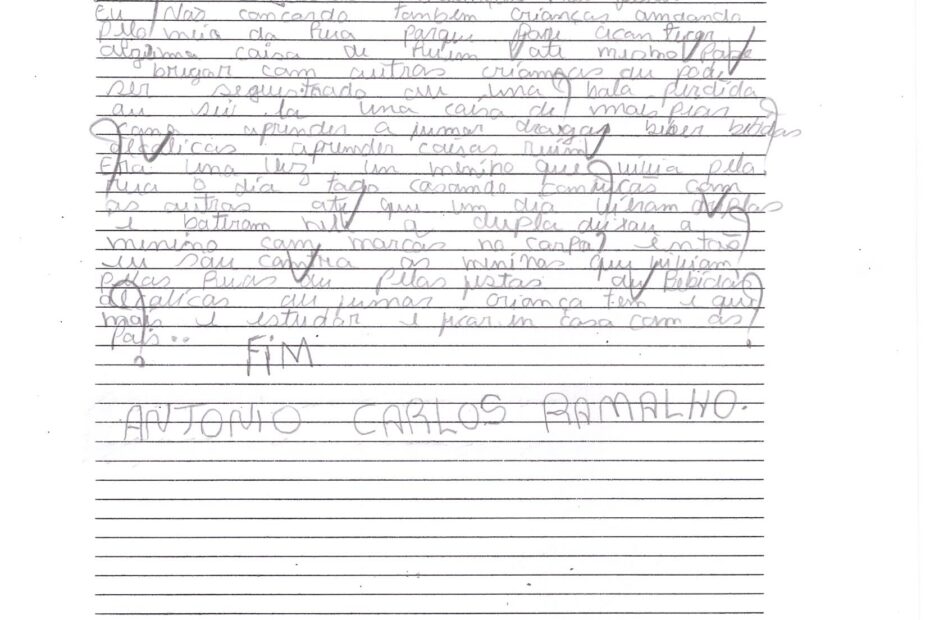 eu Não concordo também crianças amdando
pelo meia da Rua porque pode acontecer
alguma coisa de Ruim até mesmo pode
brigar com outras crianças ou pode
ser sequistrado ou uma bala perdida
ou sei la uma coisa de mais pior
como aprender a jumar drogas biber bibidas
alcolicas aprender coisas ruim
Era uma vez um menino que vivia pela
rua o dia todo casando com
as outras até que um dia viram duplas
e bateram nele a dupla deixou a
menino com marcas no corpo então
eu sou contra os meninos que viviam
pelas Ruas ou pelas festas ou Bebidas
alcolicas ou jumar criança tem e que
mais e estudar e ficar in casa com os
Pais..
FiM
ANTONIO CARLOS RAMALHO.